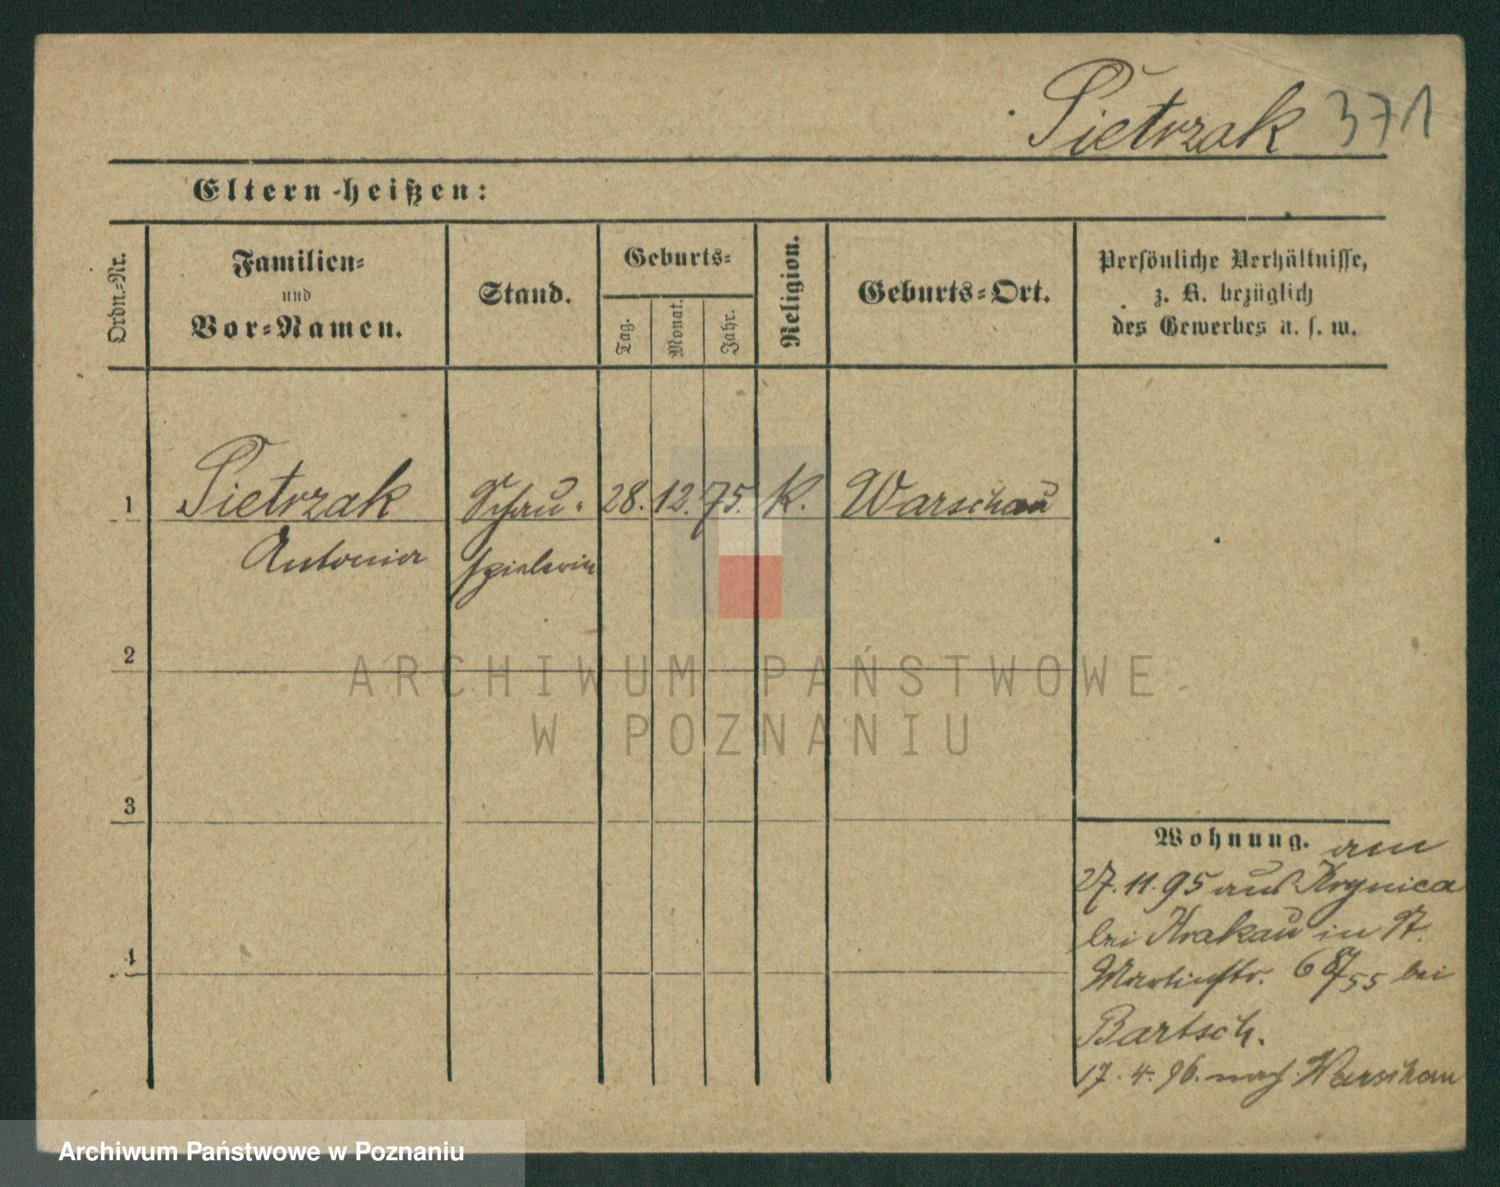 Pietrzak 371
Eltern heißen:
Ordn.-Nr.
Familien-
und
Vor-Namen.
Stand.
Geburts-
Tag.
Monat.
Jahr.
Religion.
Geburts-Ort.
Persönliche Verhältnisse,
z. B. bezüglich
des Gewerbes u. s. w.
1 Pietrzak Schau- 28. 12. 75. K. Warschau
Antonia spielerin
2
3
4
Wohnung. am
27.11.95 aus Krynica
bei Krakau in St.
Martinstr. bei
Bartsch.
17.4.96. nach Warschau
ARCHIWUM PAŃSTWOWE
W POZNANIU
Archiwum Państwowe w Poznaniu